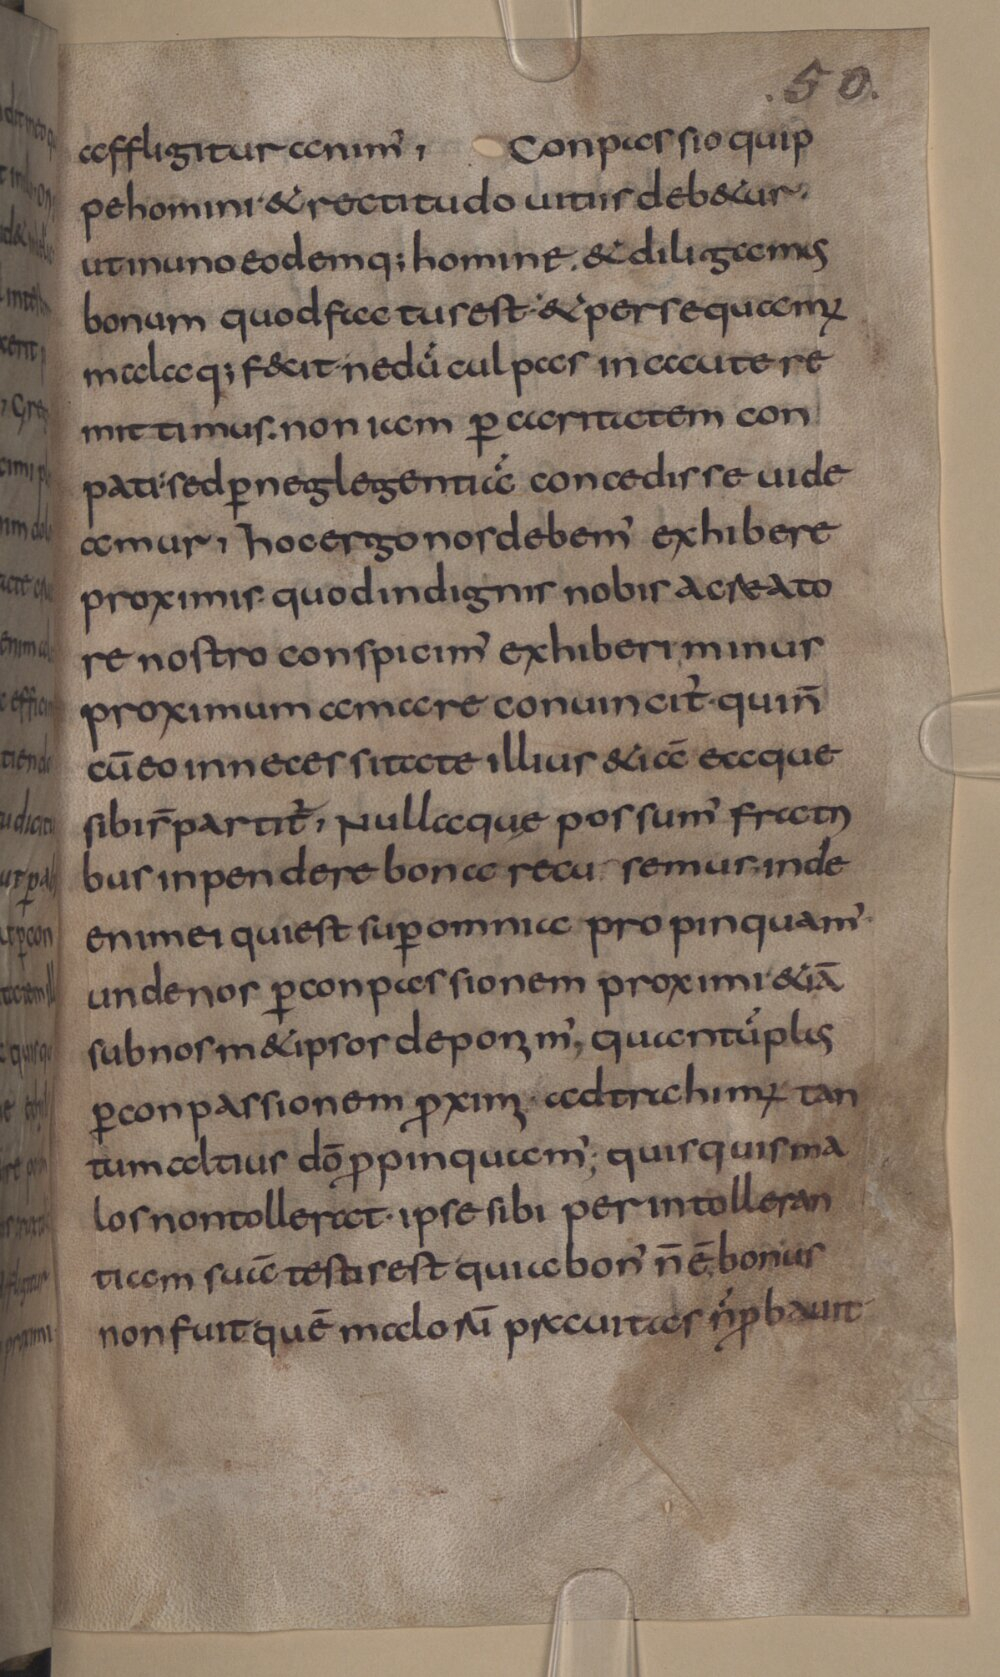 .50.
affligitur anim̓; Conpassio quip
pe homini· & rectitudo uitiis deb&ur·
ut in uno eodemq; homine. & diligamus
bonum quod factus est· & persequamur
mala q; f&cit· ne dū culpas incaute re
mittimus. non iam ꝑ caritatem con
pati· sed ꝑ neglegentiā concedisse uide
amur; hoc ergo nos debem̓ exhibere
proximis· quod indignis nobis a creato
re nostro conspicim̓ exhiberi minus
proximum amare conuincit̓· qui n̄
cū eo in necessitate illius &iā eaque
sibi s̄ partit̓; Nullaque possum̓ fratri
bus inpendere bona recusemus· inde
enim ei qui est suꝑ omnia propinquam̓·
unde nos ꝑ conpassionem proximi· &iā
sub nosm&ipsos deponim̓; quia in tū plus
ꝑ conpassionem ꝓximis adtrahimur tan
tum altius dō ꝓpinquam̓; quisquis ma
los non tollerat· ipse sibi per intolleran
tiam suā testis est quia bon̓ n̄ ē; bonus
non fuit quē malorū prauitas n̄ ꝓbauit